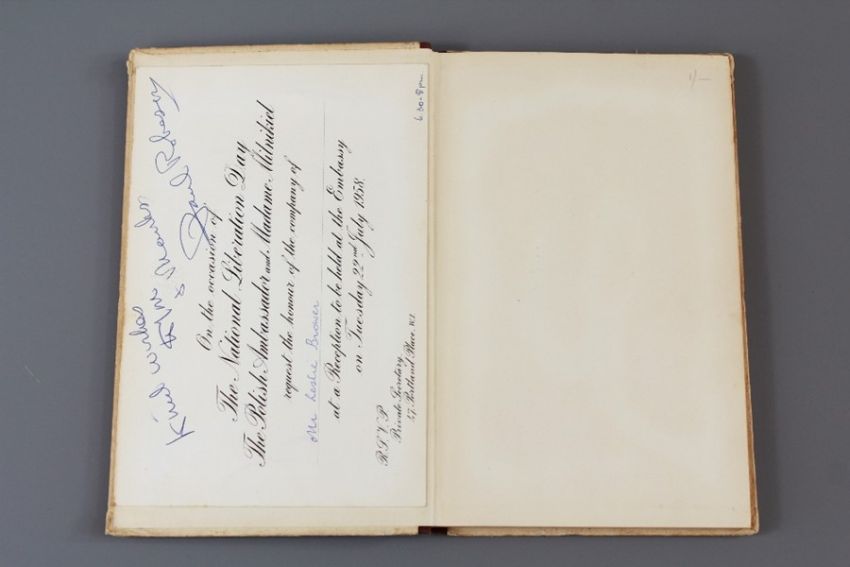 Kind wishes
& Thanks
Paul Robeson
6.30-8pm.
On the occasion of
The National Liberation Day
The Polish Ambassador and Madame Milnikiel
request the honour of the company of
Mr Leslie Brower
at a Reception to be held at the Embassy
on Tuesday 22nd July 1958.
R.S.V.P.
Private Secretary
47 Portland Place. W.1
1/-